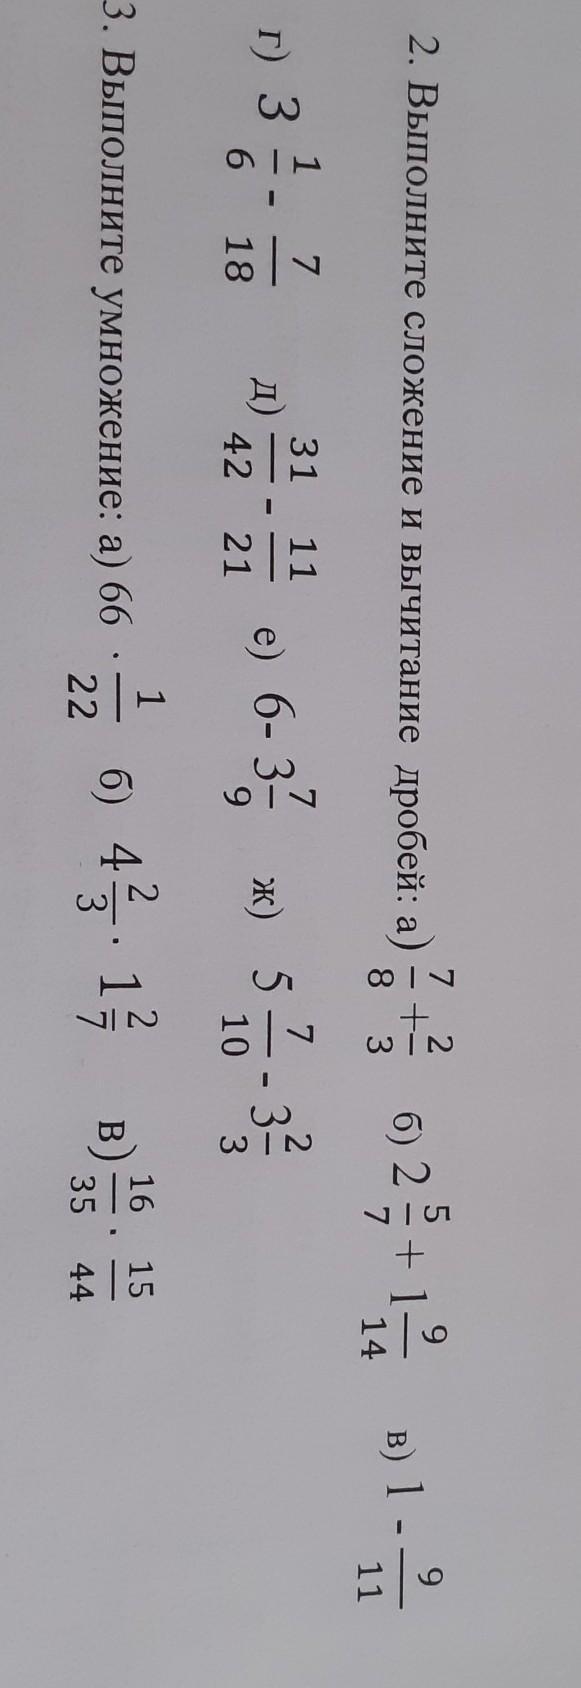 2. Выполните сложение и вычитание дробей: а) 7/8 + 2/3 б) 2 5/7 + 1 9/14 в) 1 - 9/11
г) 3 1/6 - 7/18 д) 31/42 - 11/21 е) 6- 3 7/9 ж) 5 7/10 - 3 2/3
3. Выполните умножение: а) 66 · 1/22 б) 4 2/3 · 1 2/7 в) 16/35 · 15/44